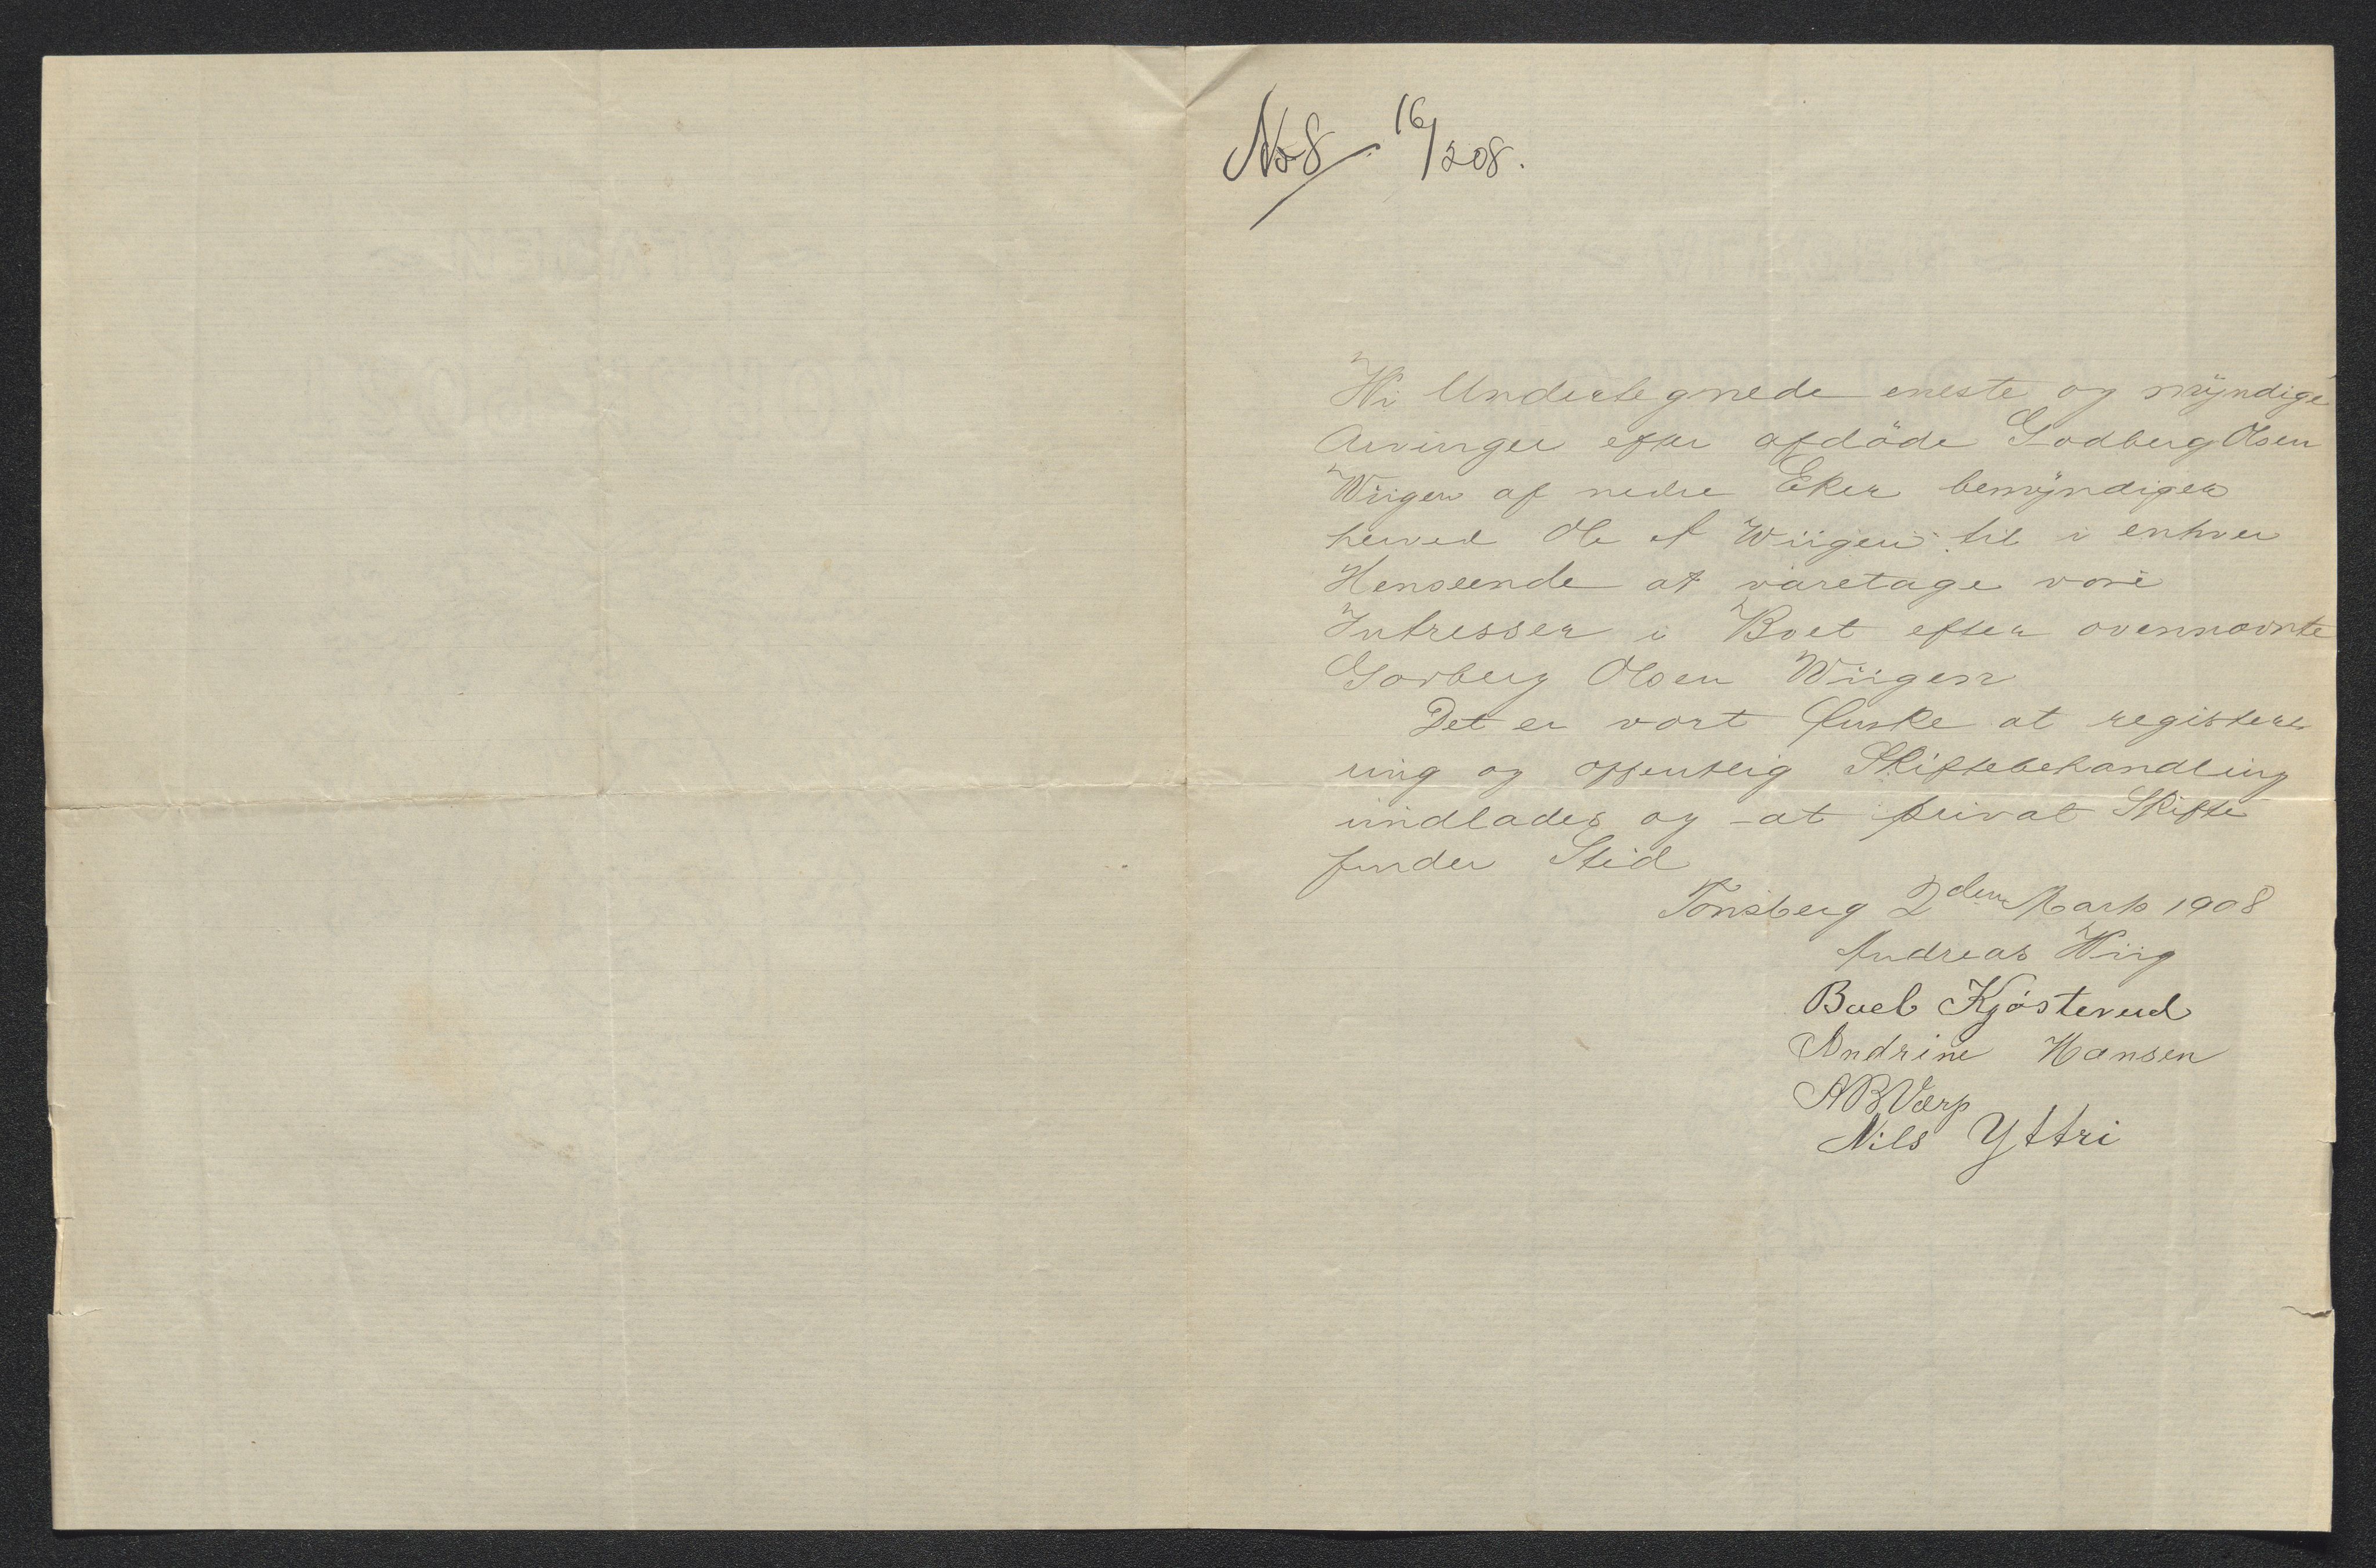 No 8. 16/2 08.
Wi Undertegnede eneste og myndige
Arvinger efter afdöde Godberg Olsen
Wiigen af nedre Eker bemyndiger
herved Ole A Wiigen til i enhver
Henseende at varetage vore
Intresser i Boet efter ovennævnte
Gorberg Olsen Wiigen
Det er vort Önske at register
ring og offentlig Skiftebehandling
undlades og at privat Skifte
finder Sted
Tønsberg 2den Marts 1908
Andreas Wiig
Boel Kjösterud
Andrine Hansen
AB Værp
Nils Yttri